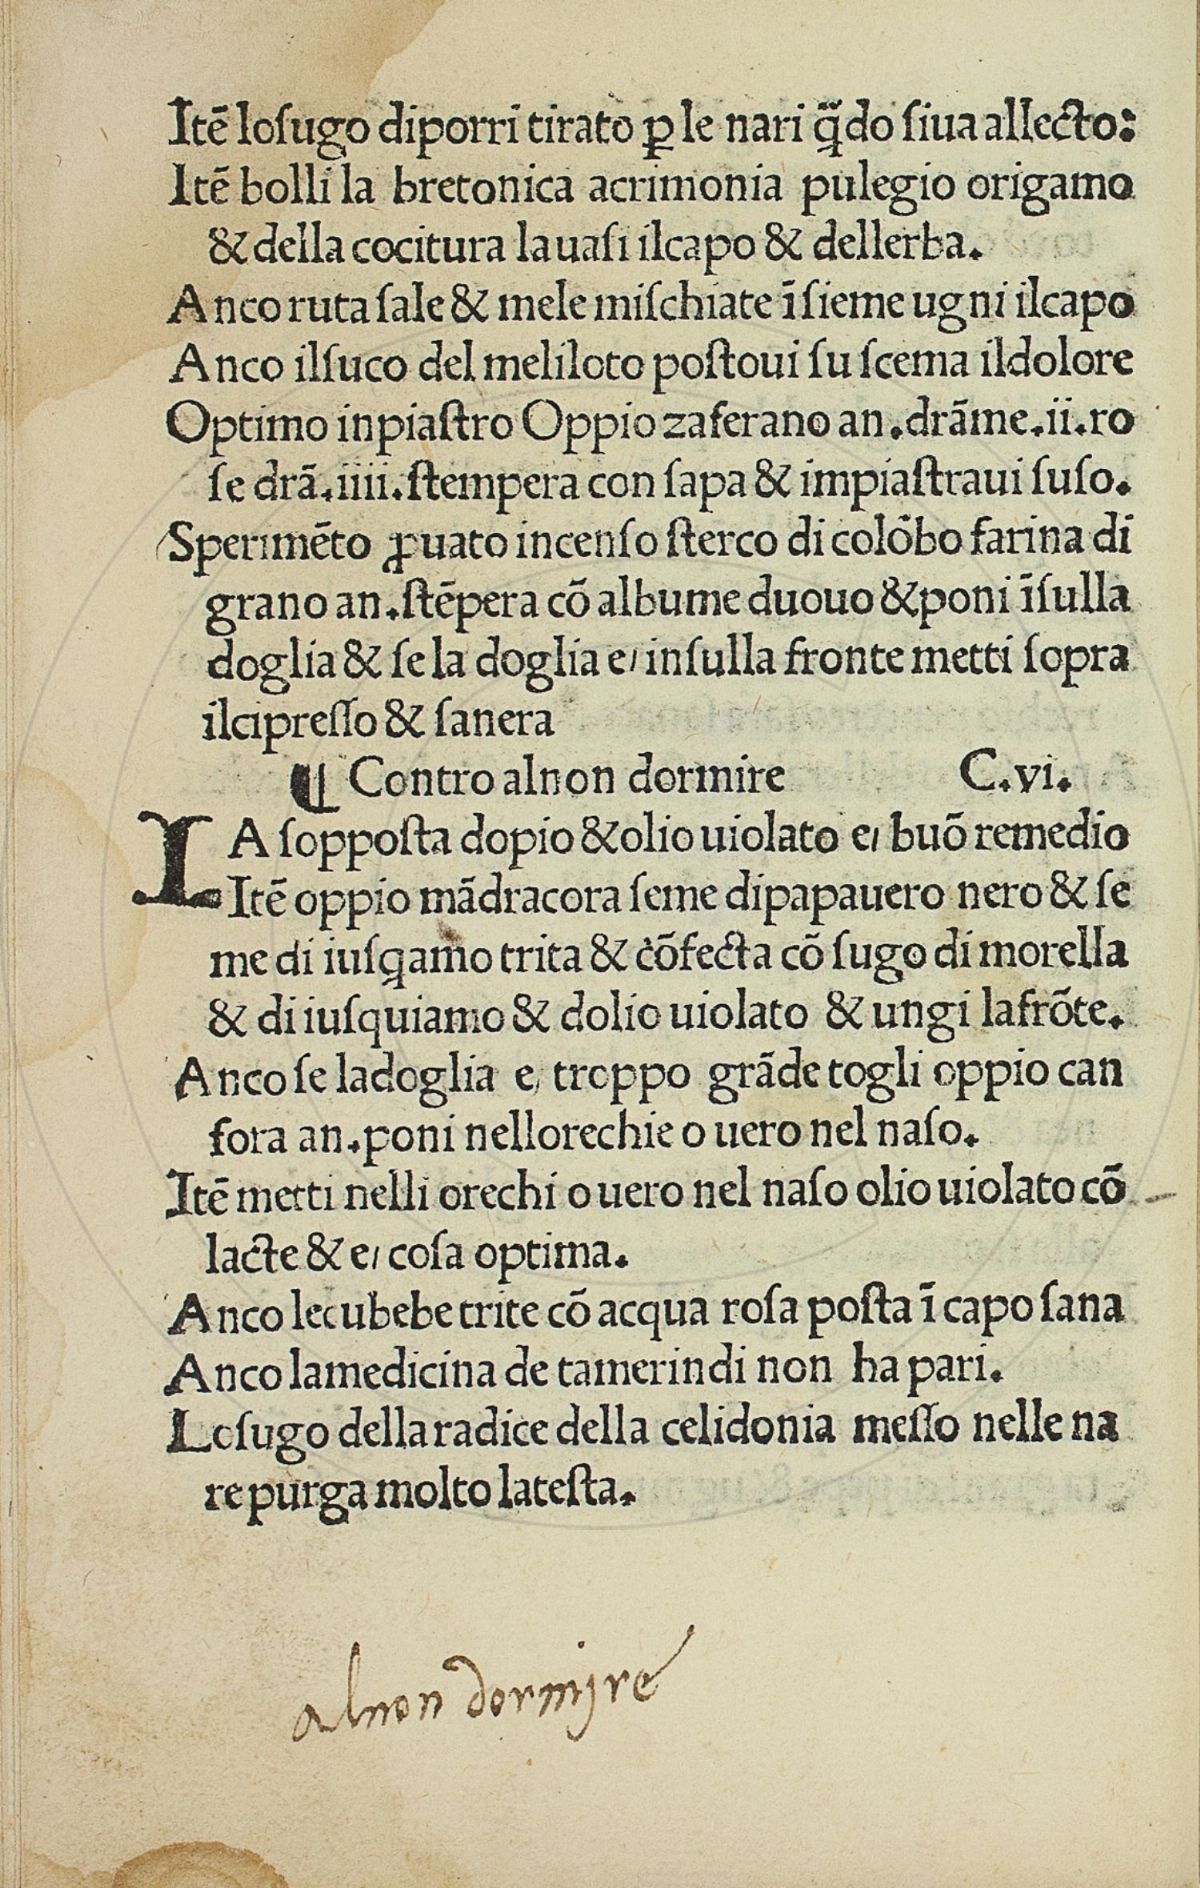 Itē losugo diporri tirato ꝑ le nari q̄do siua allecto:
Itē bolli la bretonica acrimonia pulegio origamo
& della cocitura lauasi ilcapo & dellerba.
Anco ruta sale & mele mischiate īsieme ugni ilcapo
Anco ilsuco del meliloto postoui su scema ildolore
Optimo inpiastro Oppio zaferano an.drāme.ii.ro
se drā.iiii.stempera con sapa & impiastraui suso.
Sperimēto ꝓuato incenso sterco di colōbo farina di
grano an.stēpera cō albume duouo &poni īsulla
doglia & se la doglia e/ insulla fronte metti sopra
ilcipresso & sanera
¶ Contro alnon dormire C.vi.
LA sopposta dopio &olio uiolato e/ buō remedio
Itē oppio mādracora seme dipapauero nero & se
me di iusq̱amo trita & cōfecta cō sugo di morella
& di iusquiamo & dolio uiolato & ungi lafrōte.
Anco se ladoglia e/ troppo grāde togli oppio can
fora an.poni nellorechie o uero nel naso.
Itē metti nelli orechi o uero nel naso olio uiolato cō
lacte & e/ cosa optima.
Anco lecubebe trite cō acqua rosa posta ī capo sana
Anco lamedicina de tamerindi non ha pari.
Losugo della radice della celidonia messo nelle na
re purga molto latesta.
alnon dormire